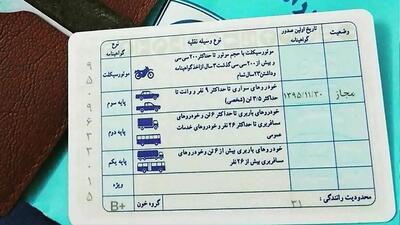 وضعیت
تاریخ اولین صدور گواهینامه
نوع وسیله نقلیه
نوع گواهینامه
موتورسیکلت با حجم موتور تا حداکثر ۲۰۰ سی سی
و بیش از ۲۰۰ سی سی گذشت ۳ سال از اخذ گواهینامه
وداشتن ۲۳ سال تمام
موتورسیکلت
مجاز
۱۳۹۵/۱۱/۳۰
خودروهای سواری تا حداکثر ۹ نفر و وانت تا
حداکثر ۳/۵ تن (شخصی)
پایه سوم
خودروهای باربری تا حداکثر ۶ تن و خودروهای
مسافربری تا حداکثر ۲۶ نفر و خودروهای خدمات
عمومی
پایه دوم
خودروهای باربری بیش از ۶ تن و خودروهای
مسافربری بیش از ۲۶ نفر
پایه یکم
ویژه
محدودیت رانندگی : ۳۱
گروه خون B+